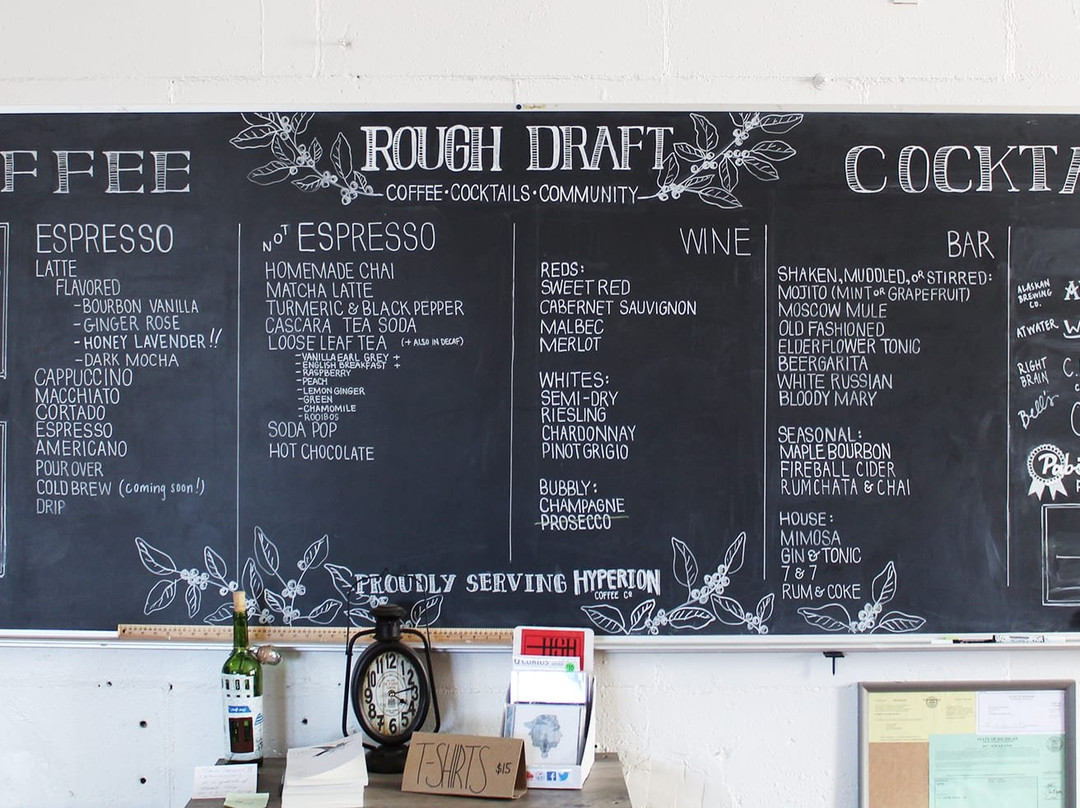 FFEE
ROUGH DRAFT
COFFEE·COCKTAILS·COMMUNITY
COCKTA
ESPRESSO
LATTE
FLAVORED
-BOURBON VANILLA
-GINGER ROSE
-HONEY LAVENDER!!
-DARK MOCHA
CAPPUCCINO
MACCHIATO
CORTADO
ESPRESSO
AMERICANO
POUR OVER
COLD BREW (coming soon!)
DRIP
NOT ESPRESSO
HOMEMADE CHAI
MATCHA LATTE
TURMERIC & BLACK PEPPER
CASCARA TEA SODA
LOOSE LEAF TEA (+ ALSO IN DECAF)
-VANILLA EARL GREY +
-ENGLISH BREAKFAST +
-RASPBERRY
-PEACH
-LEMON GINGER
-GREEN
-CHAMOMILE
-ROOIBOS
SODA POP
HOT CHOCOLATE
WINE
REDS:
SWEET RED
CABERNET SAUVIGNON
MALBEC
MERLOT
WHITES:
SEMI-DRY
RIESLING
CHARDONNAY
PINOT GRIGIO
BUBBLY:
CHAMPAGNE
PROSECCO
BAR
SHAKEN, MUDDLED, OR STIRRED:
MOJITO (MINT OR GRAPEFRUIT)
MOSCOW MULE
OLD FASHIONED
ELDERFLOWER TONIC
BEERGARITA
WHITE RUSSIAN
BLOODY MARY
SEASONAL:
MAPLE BOURBON
FIREBALL CIDER
RUMCHATA & CHAI
HOUSE:
MIMOSA
GIN & TONIC
7 & 7
RUM & COKE
ALASKAN
BREWING
CO.
ATWATER
RIGHT
BRAIN
Bell's
PROUDLY SERVING HYPERION
COFFEE CO
12
1
2
3
4
5
6
7
8
9
10
11
T-SHIRTS $15